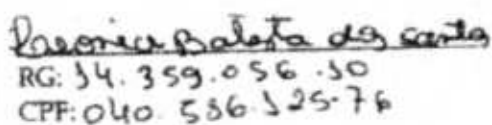 Batista dos santos
RG: 14.359.056.10
CPF: 040.586.125-76